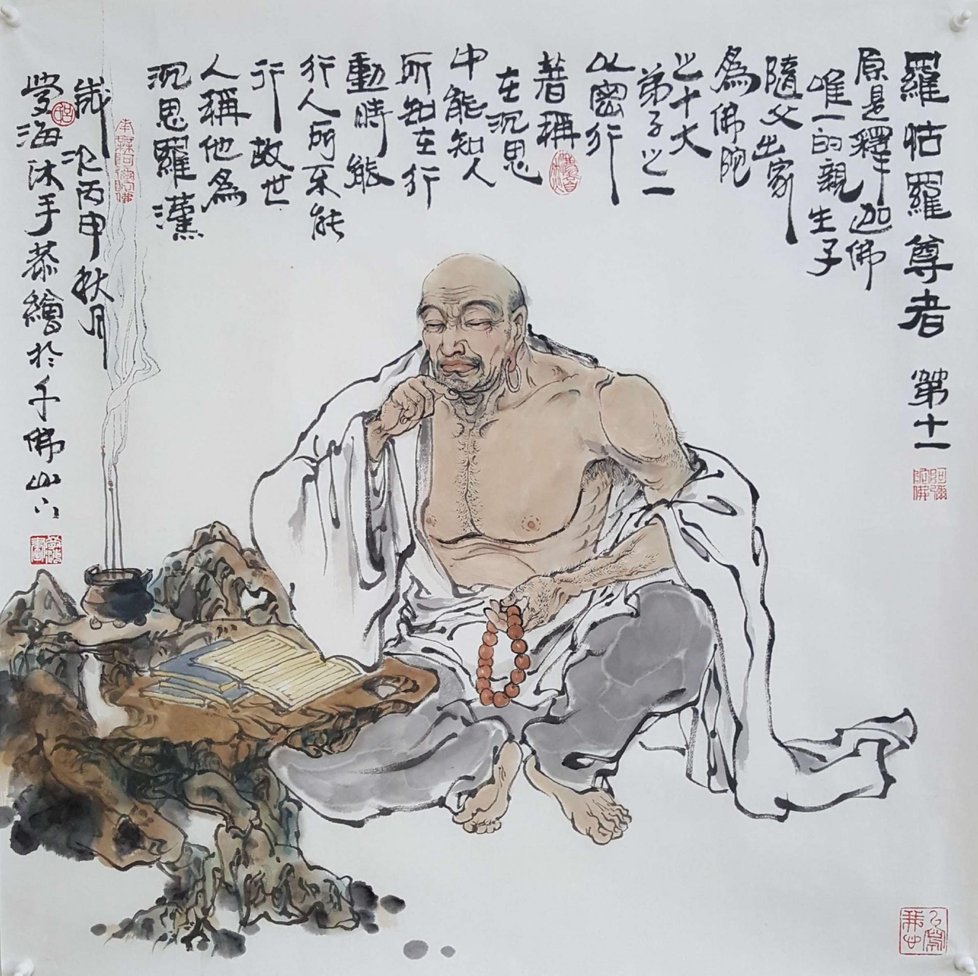 羅怙羅尊者 第十一
阿彌陀佛
原是釋迦佛
唯一的親生子
隨父出家
為佛陀
之十大
弟子之一
以密行
著稱
在沉思
中能知人
所知在行
動時能
行人所不能
行故世
人稱他為
沉思羅漢
南無阿彌陀佛
歲次丙申秋月
海沐手恭繪於千佛山下